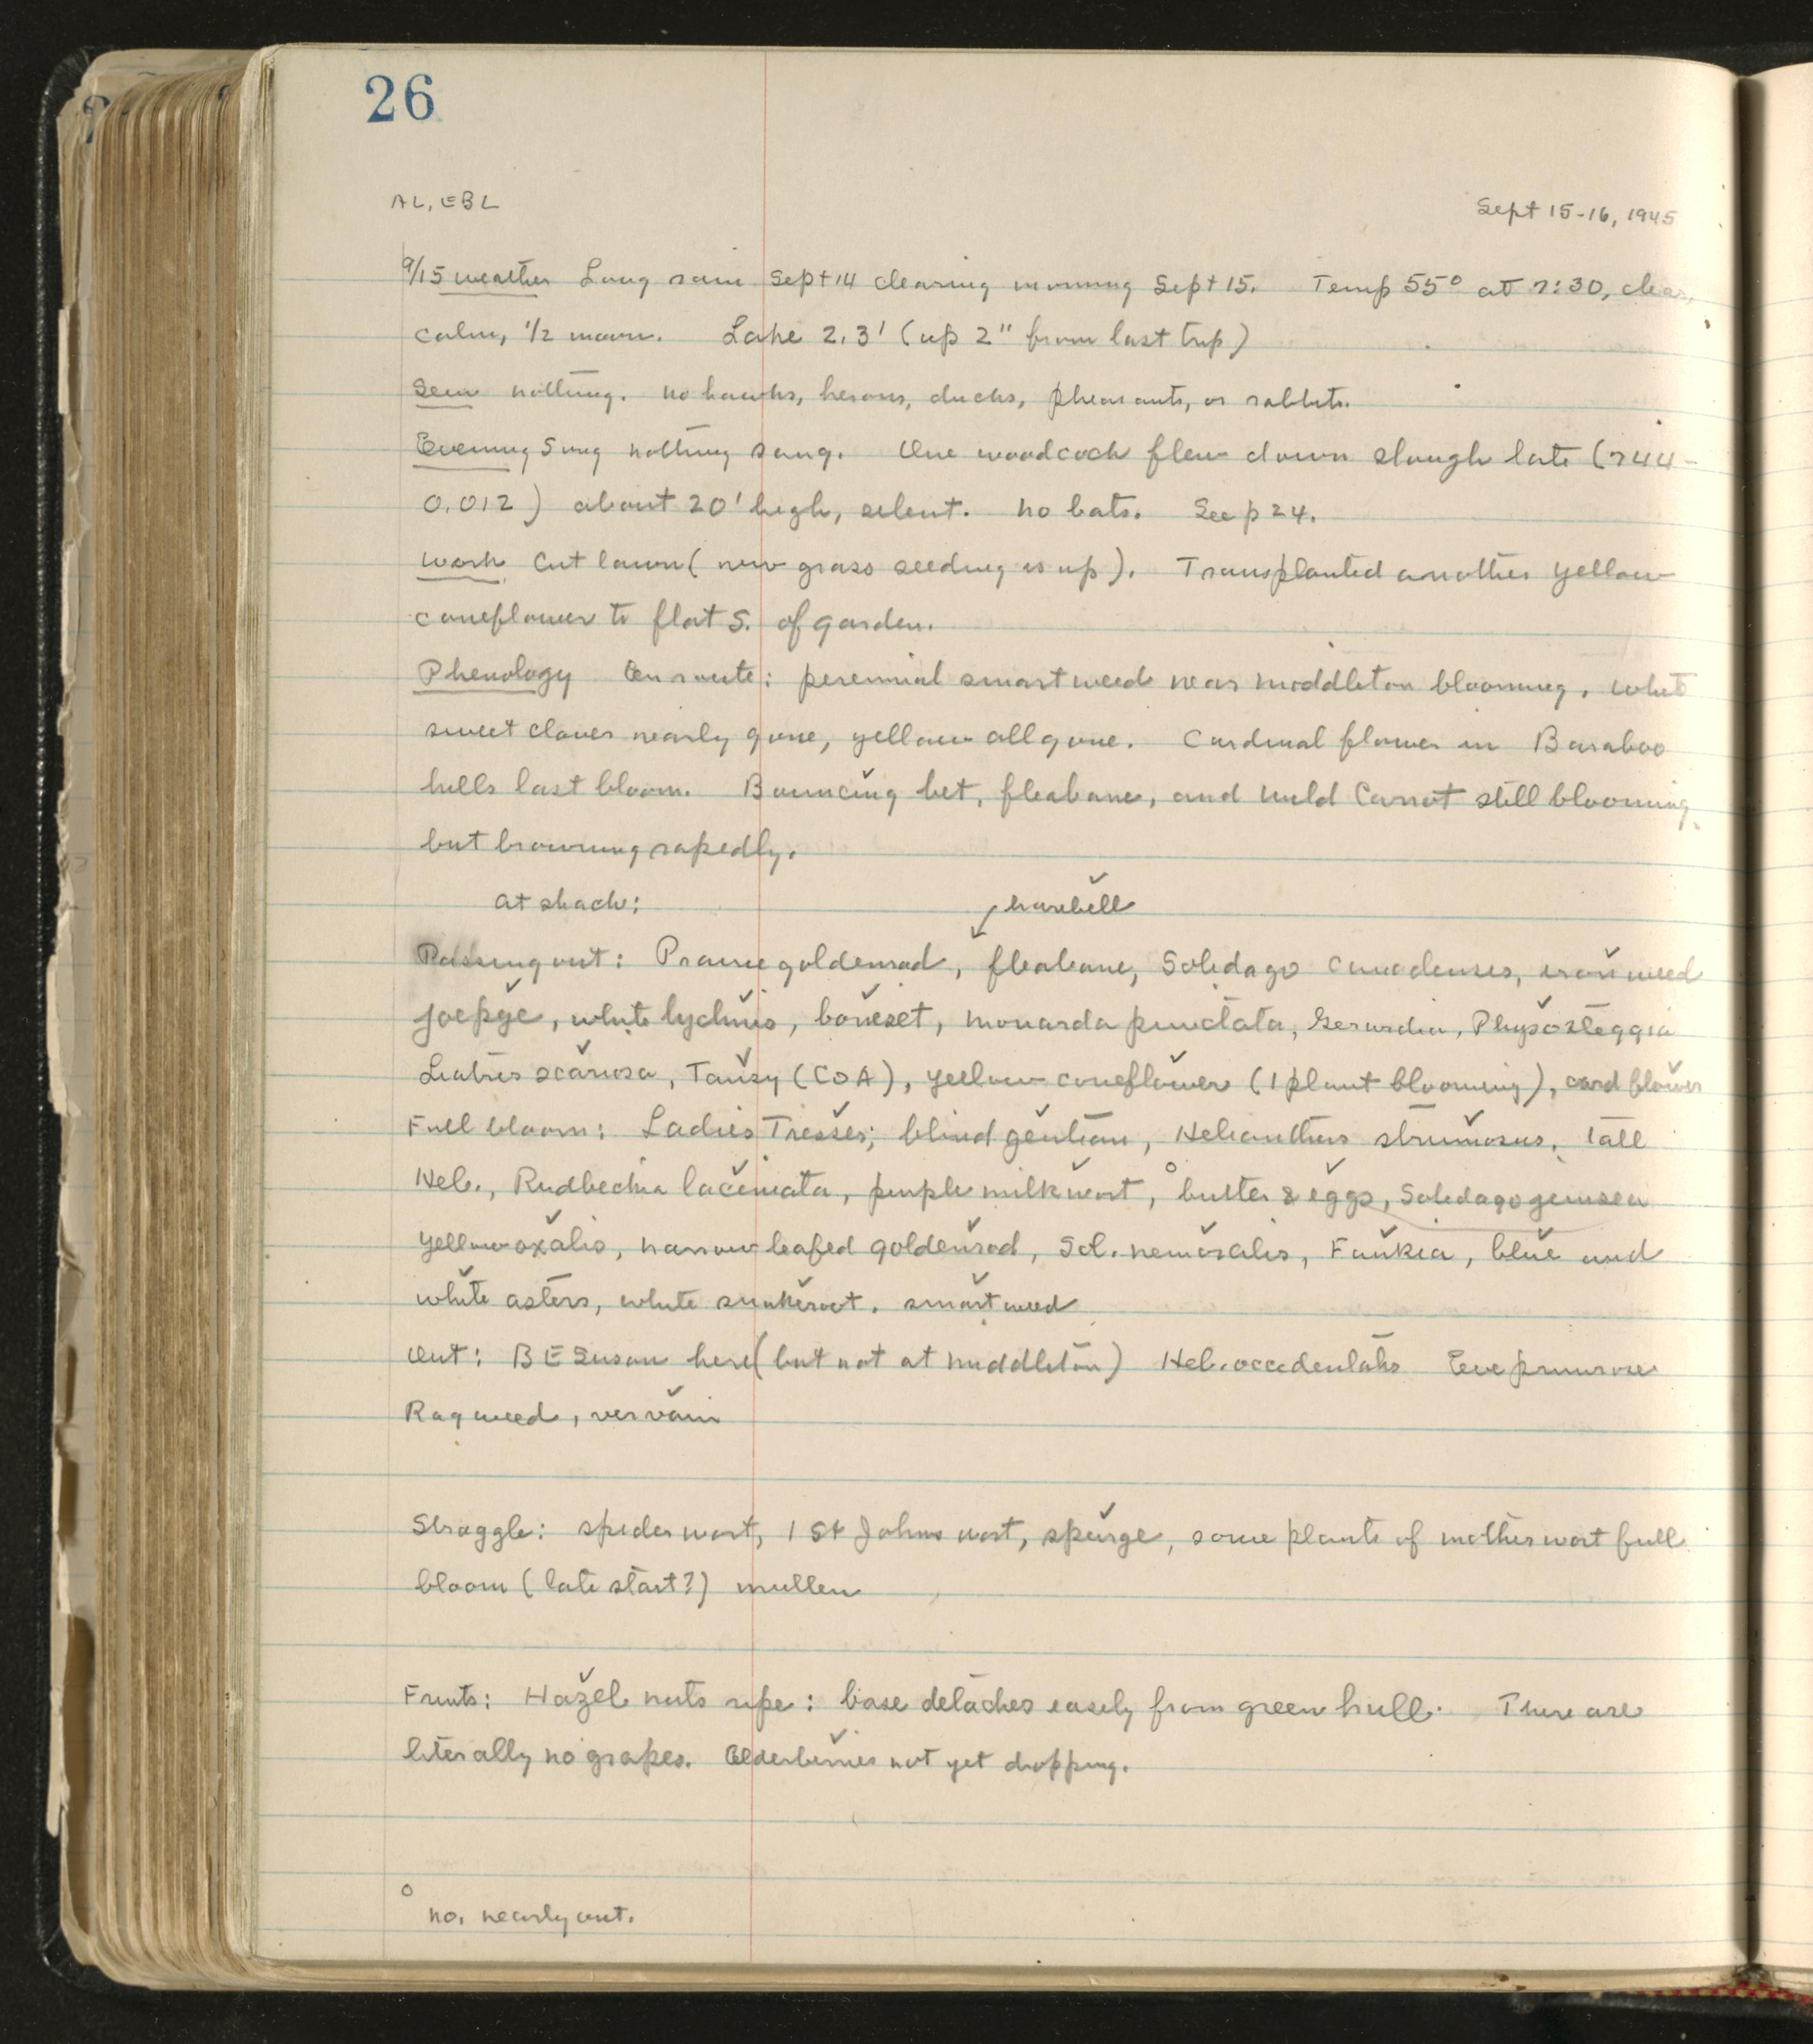 26
AL, EBL
Sept 15-16, 1945
9/15 weather Long rain Sept 14 clearing morning Sept 15. Temp 55° at 7:30, clear,
calm, 1/2 moon. Lake 2.3' (up 2" from last trip)
Seen nothing. no hawks, herons, ducks, pheasants, or rabbits.
Evening Song nothing sang. One woodcock flew down slough late (744-
0.012) about 20' high, silent. no bats. See p 24.
Work Cut lawn (new grass seeding is up). Transplanted another yellow
coneflower to flat S. of garden.
Phenology Enroute: perennial smartweed near Middleton blooming, white
sweet clover nearly gone, yellow all gone. Cardinal flower in Baraboo
hills last bloom. Bouncing bet, fleabane, and wild Carrot still blooming
but browning rapidly.
at shack: harebell
Passing out: Prairie goldenrod, fleabane, Solidago canadensis, ironweed
joepye, white lychnis, boneset, monarda punctata, Gerardia, Physosteggia
Liatris scariosa, Tansy (CDA), yellow coneflower (1 plant blooming), card flower
Full bloom: Ladies Tresses; blind gentian, Helianthus strumosus, Tall
Hel., Rudbeckia laciniata, purple milkwort, ° butter & eggs, Solidago
yellow oxalis, narrow leafed goldenrod, Sol. nemoralis, Funkia, blue and
white asters, white snakeroot. smartweed
Out: BE Susan here (but not at Middleton) Hel. occidentalis Eve primrose
Ragweed, vervain
Straggle: spiderwort, 1 St Johns wort, spurge, some plants of motherwort full
bloom (late start?) mullen
Fruits: Hazel nuts ripe: base detaches easily from green hull. There are
literally no grapes. Elderberries not yet dropping.
° no, nearly out.